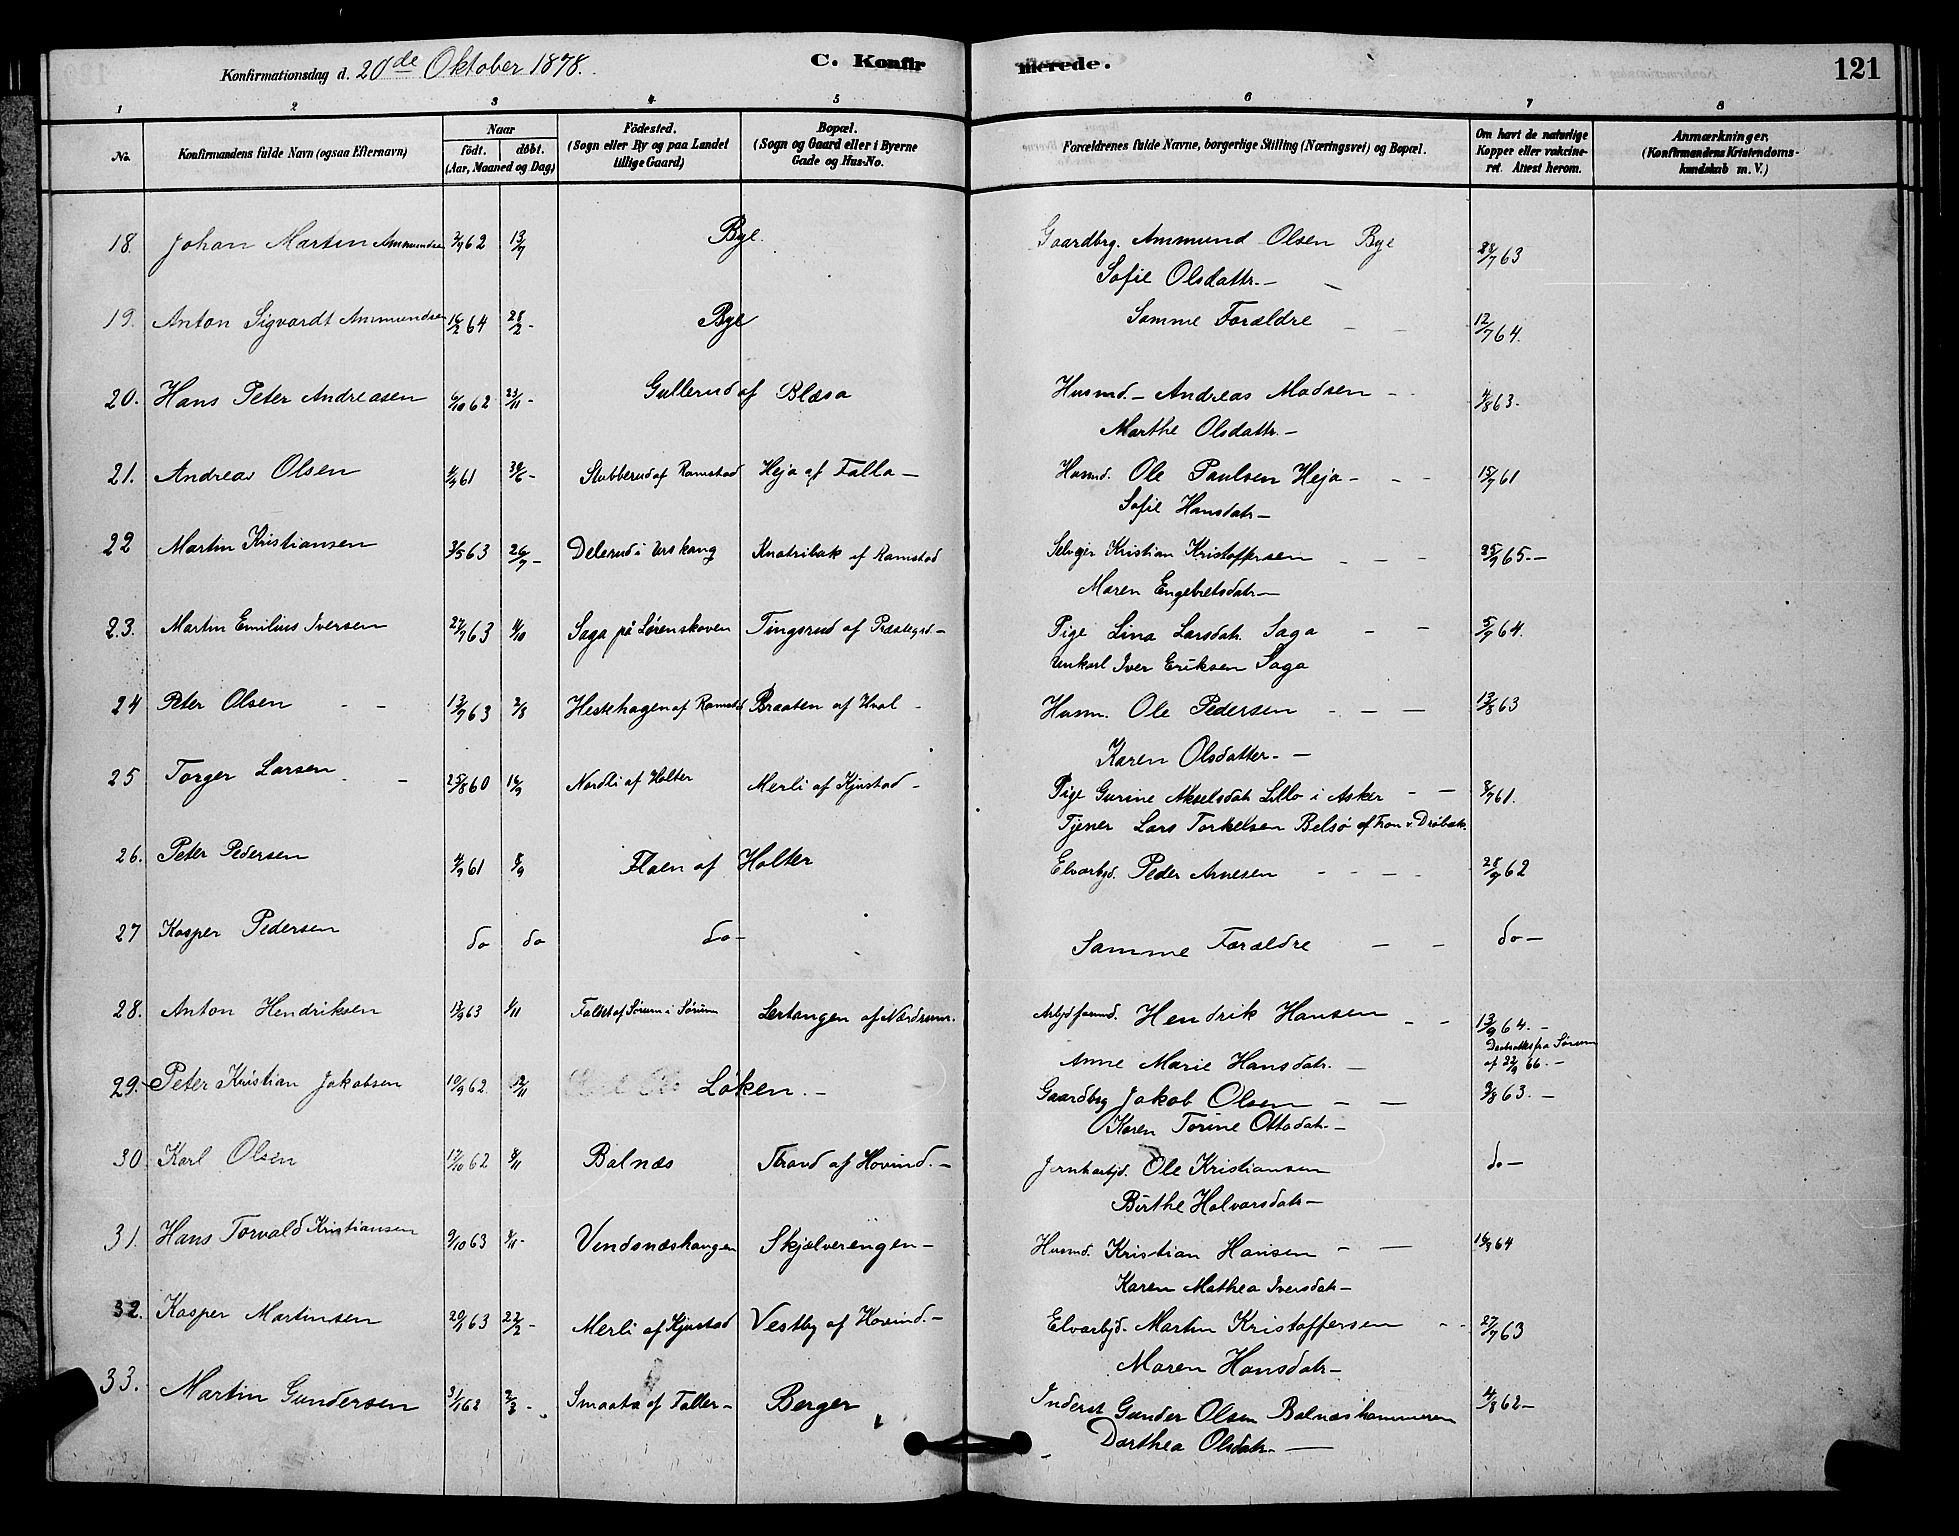 Konfirmationsdag d. 20de Oktober 1878.
C. Konfir
merede.
121
1 2 3 4 5 6 7 8
No.
Konfirmandens fulde Navn (ogsaa Efternavn)
Naar
födt. döbt.
(Aar, Maaned og Dag)
Födested.
(Sogn eller By og paa Landet
tillige Gaard)
Bopæl.
(Sogn og Gaard eller i Byerne
Gade og Hus-No.
Forældrenes fulde Navne, borgerlige Stilling (Næringsvei) og Bopæl.
Om havt de naturlige
Kopper eller vakcine-
ret. Attest herom.
Anmærkninger.
(Konfirmandens Kristendoms-
kundskab m. V.)
18. Johan Martin Ammundsen 2/7 62 13/7 Bye. Gaardbrg. Ammund Olsen Bye 28/7 63
Sofie Olsdattr. –
19. Anton Sigvardt Ammundsen 16/2 64 28/2 - Bye Samme Forældre – – 12/7 64.
20. Hans Peter Andreasen 6/10 62 23/11 - Gullerud af Blæsa Husmd. – Andreas Madsen – 4/8 63.
Marthe Olsdattr. –
21. Andreas Olsen 4/4 61 30/6 - Stubberud af Ramstad Heja af Falla – Husmd. Ole Paulsen Heja – – – 15/7 61
Sofie Hansdatr –
22 Martin Kristiansen 3/5 63 26/7 - Delerud i Urskoug Knatribak af Ramstad Selvejer Kristian Kristoffersen – – – 25/9 65. –
Maren Engebretsdatr –
23. Martin Emilius Iversen 27/7 63 4/10 Saga på Lørenskoven Tingsrud af Præstegrd – Pige Lina Larsdatr. Saga – – 5/7 64.
Unkarl Iver Eriksen Saga
24 Peter Olsen – – 13/7 63 2/8 Hestehagen af Ramstad Braaten af Hval – Husm. Ole Pedersen – – – 13/8 63
Karen Olsdatter. –
25 Torger Larsen – 25/8 60 16/9 Nordli af Holter Merli af Kjustad – Pige Gurine Akselsdatr. Lillo i Asker – – 8/7 61.
Tjener Lars Torkelsen Belsø af Fron v. Drøbak.
26. Peter Pedersen 4/9 61 8/9 Flaen af Holter Elvarbjd. Peder Arnesen – – – – 28/9 62
27 Kasper Pedersen do do do – Samme Forældre – – do –
28. Anton Hendriksen 13/9 63 1/11 Fallet af Sørum i Sørum Lertangen af Nordrum. Arbejdsmd. Hendrik Hansen – – 13/9 64. –
Anne Marie Hansdatr. – Døbeattest fra Sørum
af 22/9 66. –
29. Peter Kristian Jakobsen 10/9 62 12/11 Løken. – Gaardbrg Jakob Olsen – – 9/8 63. –
Karen Torine Ottosdatr. –
30 Karl Olsen 17/10 62 8/11 Balnæs Strand af Hovind. – Jernbarbjd. Ole Kristiansen do –
Birthe Halvarsdatr –
31. Hans Torvald Kristiansen 9/10 63 1/11 - Vendsnæshaugen Skjælverengen – Husmd. Kristian Hansen – – 16/8 64
Karen Mathea Iversdatr –
32. Kasper Martinsen 20/1 63 22/2 - Merli af Kjustad Vestby af Hovind. – Elvarbjd. Martin Kristoffersen – – 27/7 63
Maren Hansdatr –
33. Martin Gundersen 3/1 62 2/3 - Smaata af Faller – Berger Inderst Gunder Olsen Balnæskammeren 4/8 62 –
Dorthea Olsdatr. –